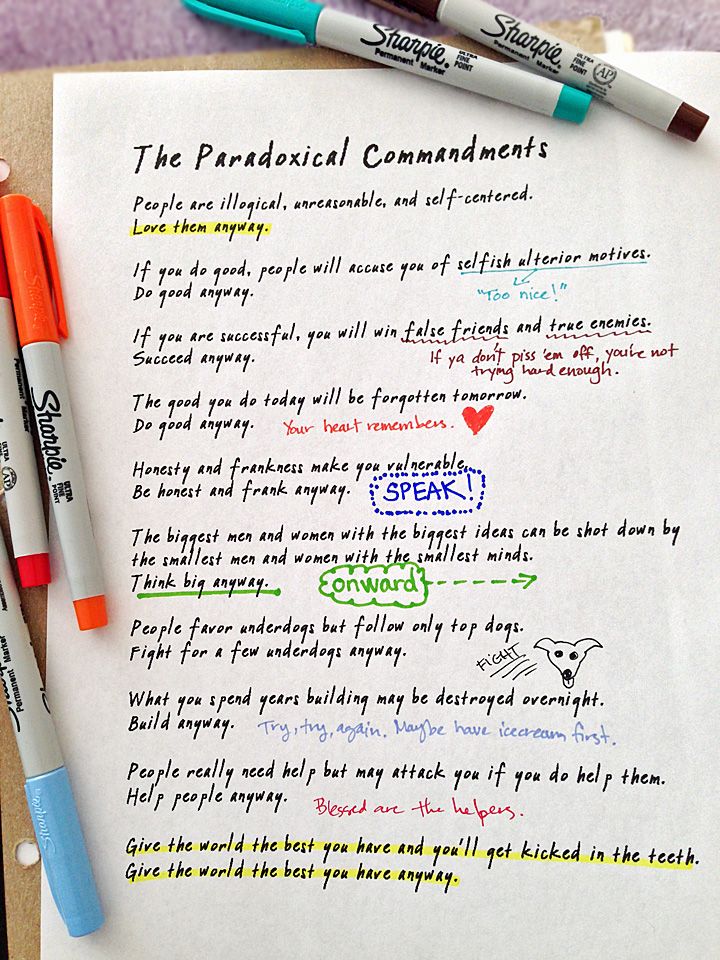 Sharpie.
Permanent Marker
ULTRA
FINE
POINT
Sharpie
Permanent Marker
ULTRA
FINE
POINT
AP
The Paradoxical Commandments
People are illogical, unreasonable, and self-centered.
Love them anyway.
If you do good, people will accuse you of selfish ulterior motives.
Do good anyway.
"Too nice!"
If you are successful, you will win false friends and true enemies.
Succeed anyway.
If ya don't piss 'em off, you're not
trying hard enough.
The good you do today will be forgotten tomorrow.
Do good anyway.
Your heart remembers.
Honesty and frankness make you vulnerable.
Be honest and frank anyway.
SPEAK!
The biggest men and women with the biggest ideas can be shot down by
the smallest men and women with the smallest minds.
Think big anyway.
onward
People favor underdogs but follow only top dogs.
Fight for a few underdogs anyway.
FIGHT
What you spend years building may be destroyed overnight.
Build anyway.
Try, try, again. Maybe have icecream first.
People really need help but may attack you if you do help them.
Help people anyway.
Blessed are the helpers.
Give the world the best you have and you'll get kicked in the teeth.
Give the world the best you have anyway.
Sharpie
Sharpie
Permanent Marker
ULTRA
FINE
POINT
Permanent Marker
ULTRA
AP
Permanent Marker
Sharpie